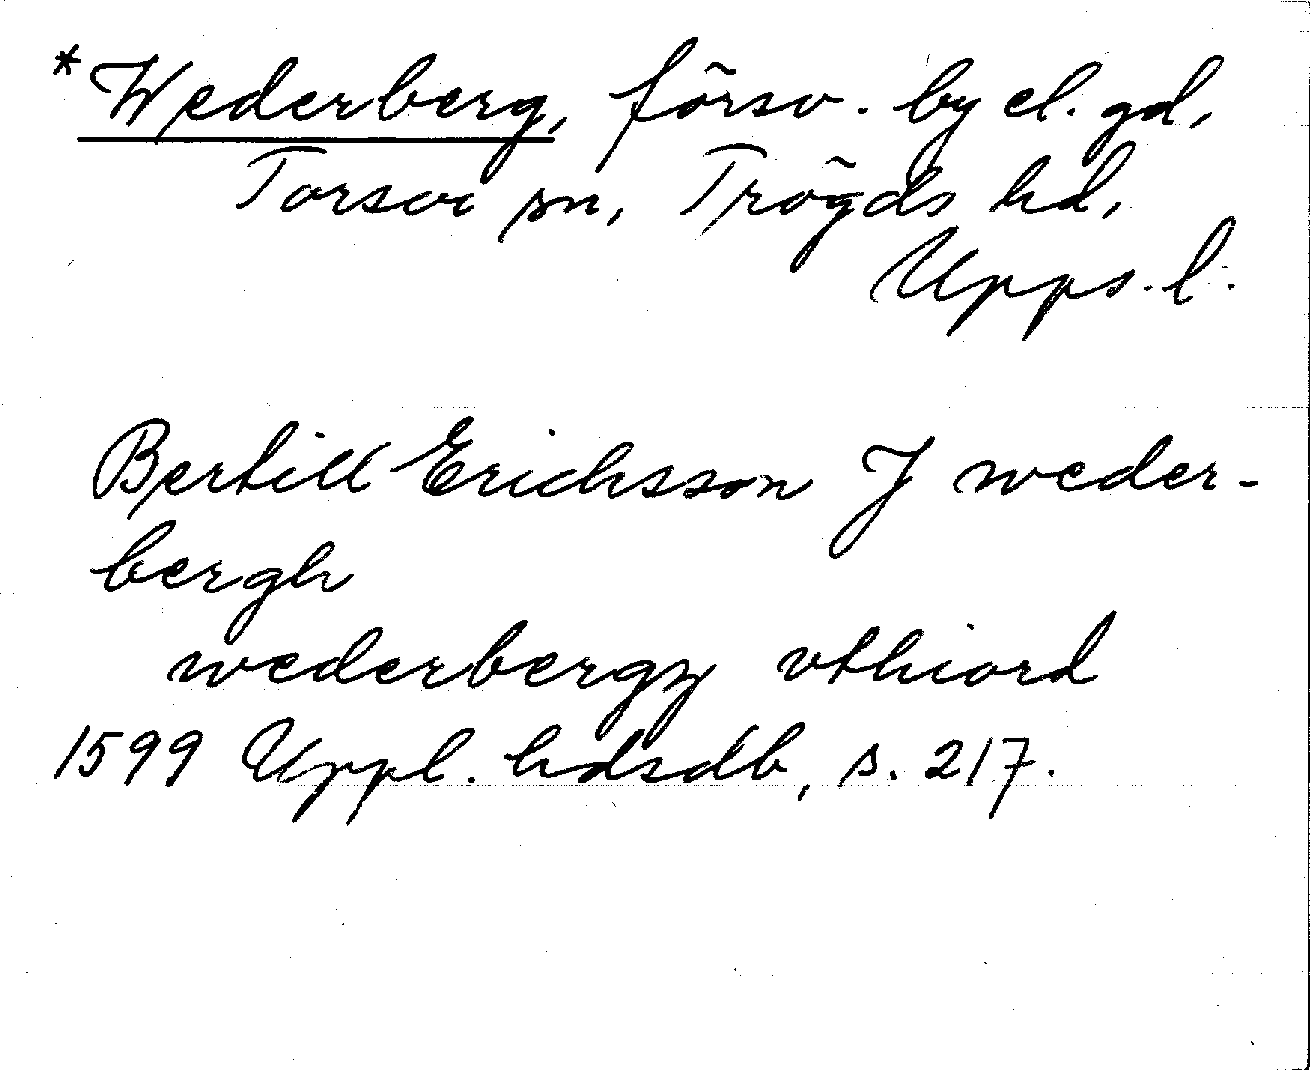 *Wederberg, försv. by el. gd,
Torsvi sn, Trögds hd,
Upps. l.
Bertill Erichsson J weder-
bergh
wederbergz vthiord
1599 Uppl. hdsdb, s. 217.